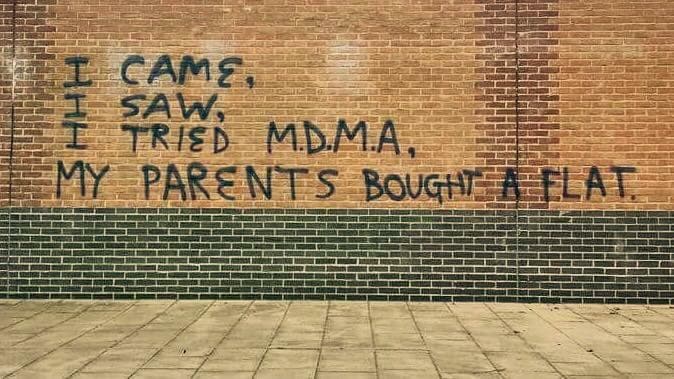 I CAME,
I SAW,
I TRIED M.D.M.A,
MY PARENTS BOUGHT A FLAT.